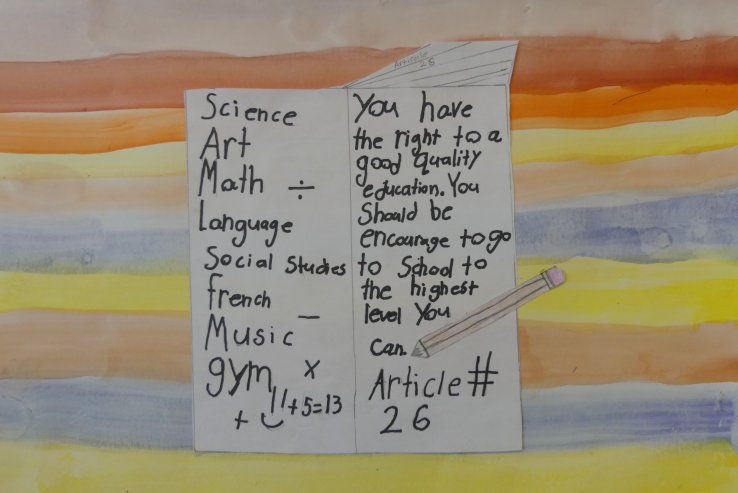 Article
26
Science
Art
Math ÷
Language
Social Studies
french
Music
gym x
11+5=13
+
You have
the right to a
good quality
education. You
Should be
encourage to go
to School to
the highest
level You
can.
Article #
26